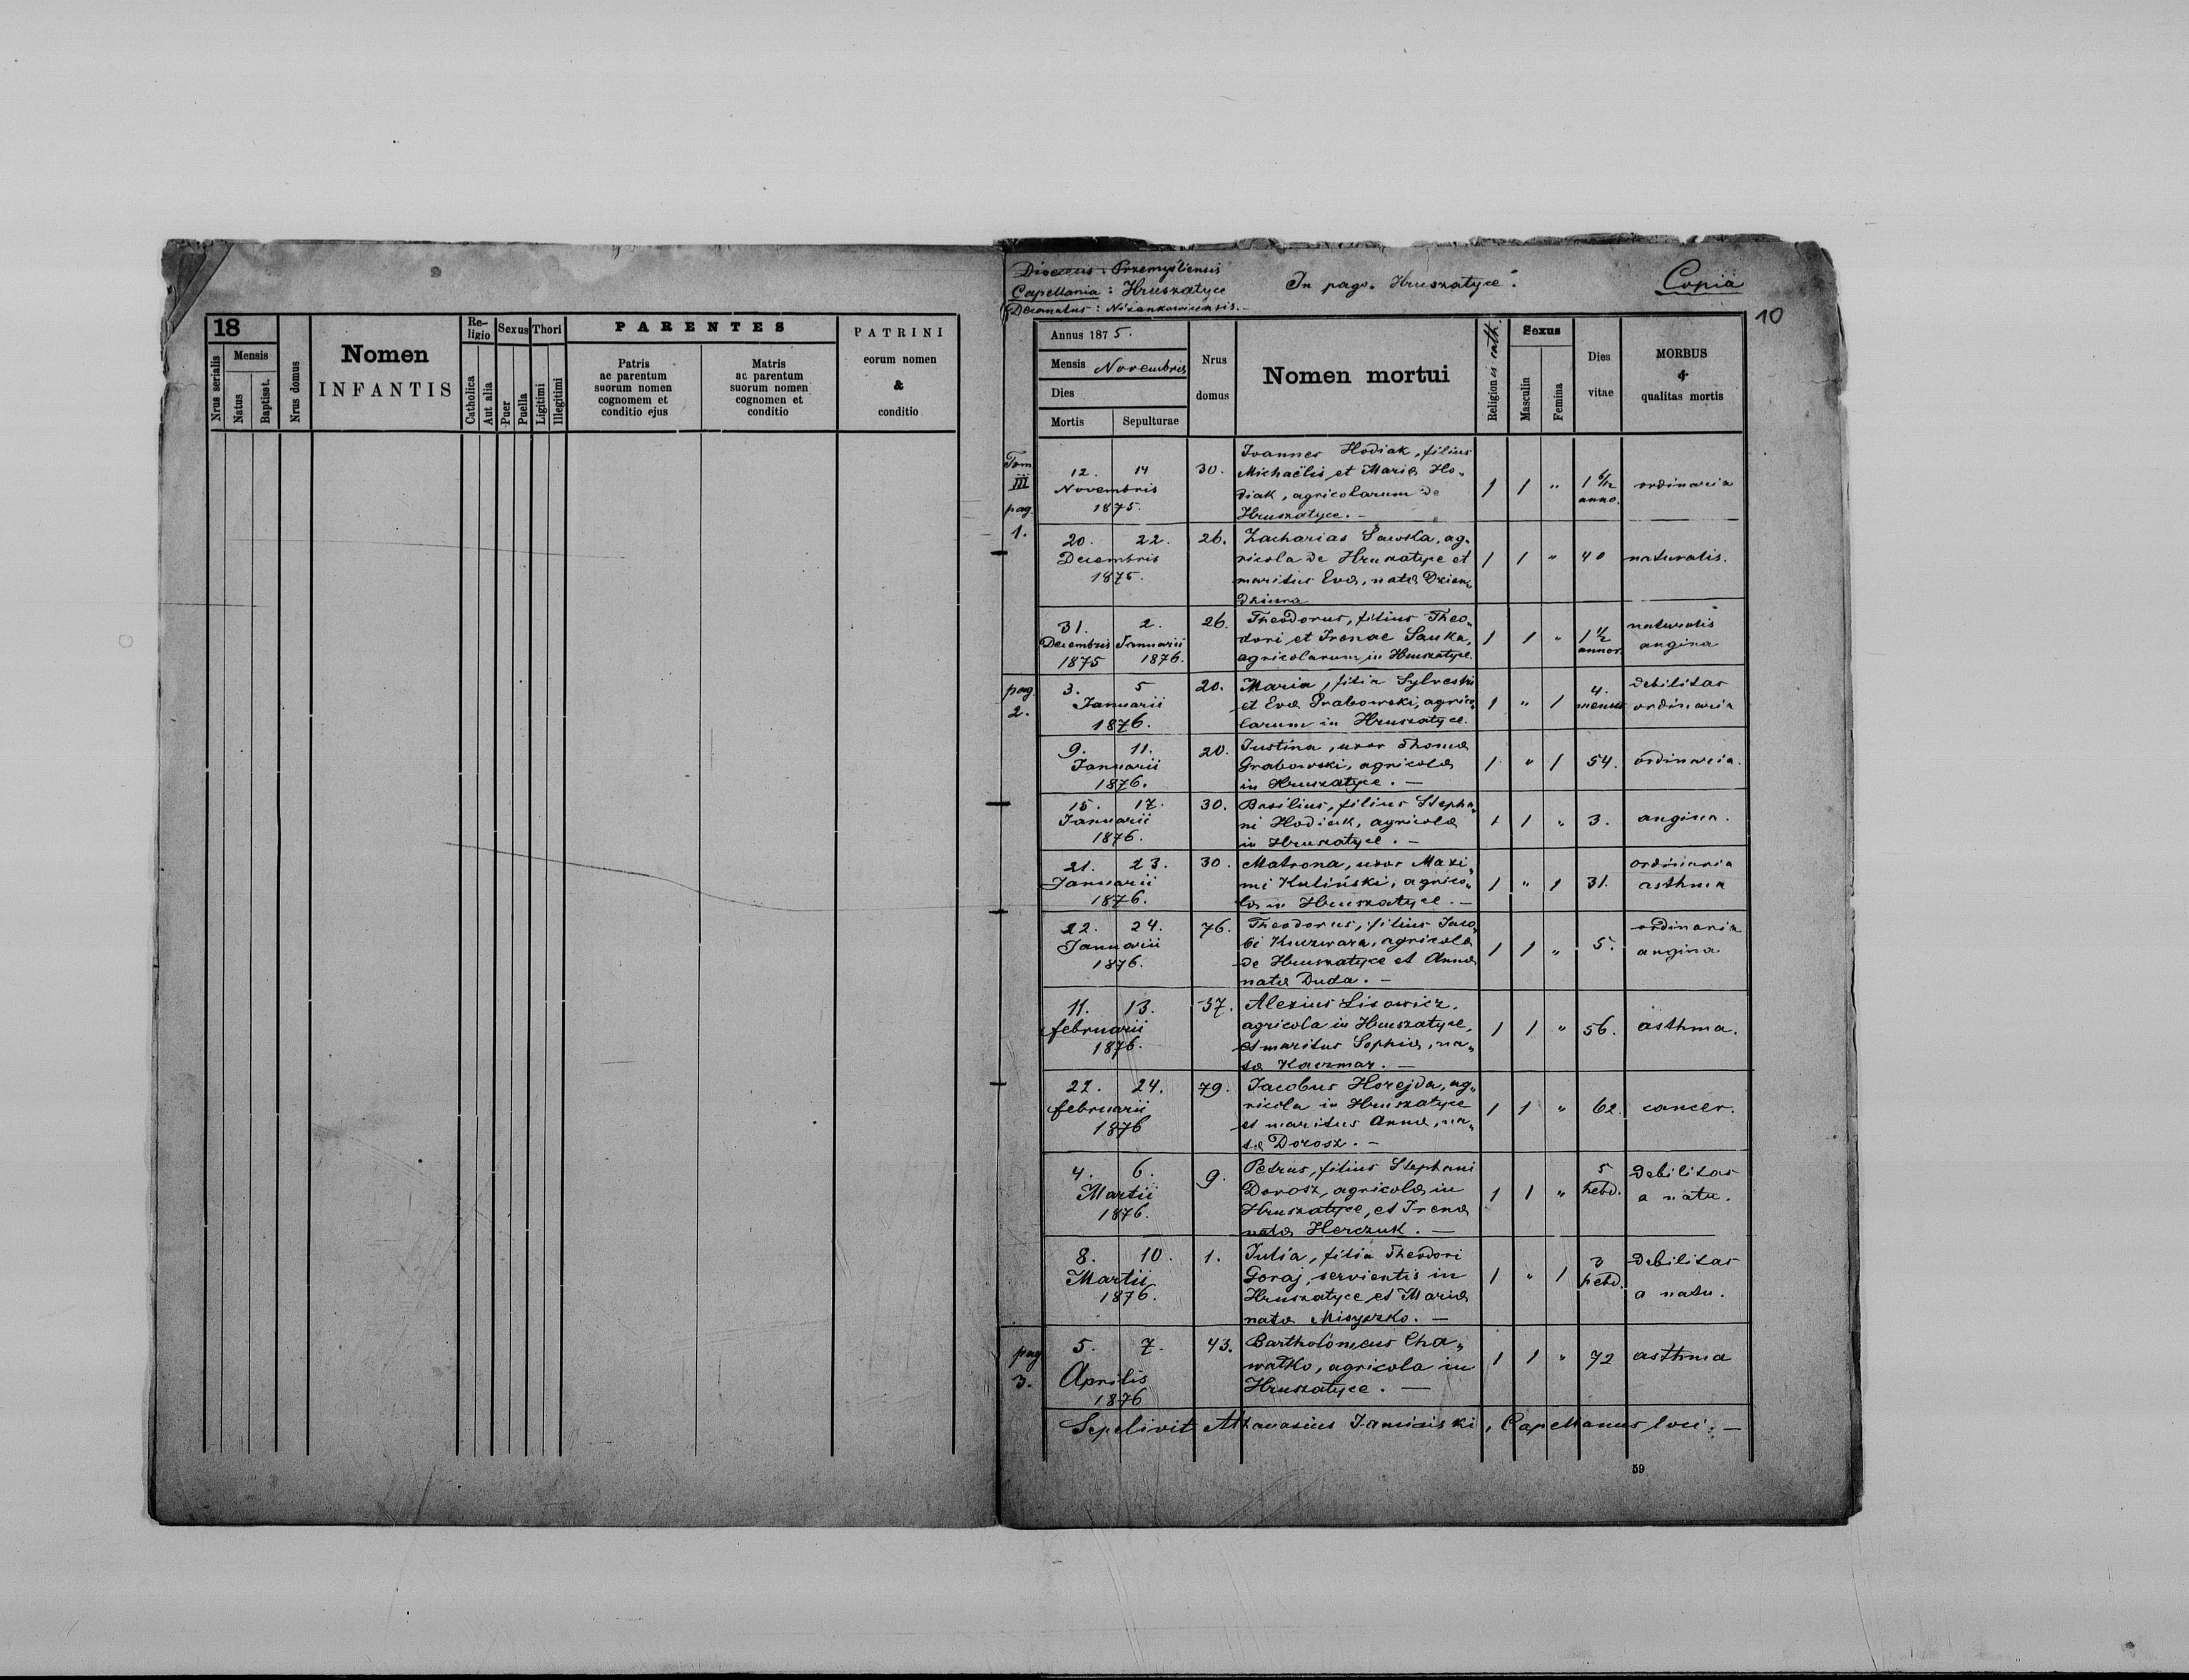 18
Nrus serialis
Mensis
Natus
Baptisat.
Nrus domus
Nomen
INFANTIS
Re-
ligio
Catholica
Aut alia
Sexus
Puer
Puella
Thori
Ligitimi
Illegitimi
PARENTES
Patris
ac parentum
suorum nomen
cognomem et
conditio ejus
Matris
ac parentum
suorum nomen
cognomen et
conditio
PATRINI
eorum nomen
&
conditio
Dioecesis: Przemysliensis
Capellania: Hruszatyce
Decanatus: Niżankowicensis.
In pago. Hruszatyce.
Copia
10
Annus 1875.
Mensis Novembris
Dies
Mortis
Sepulturae
Nrus
domus
Nomen mortui
Religionis cath.
Sexus
Masculin
Femina
Dies
vitae
MORBUS
&
qualitas mortis
Tom
III
pag.
1.
12. 14
Novembris
1875.
30.
Ioannes Hodiak, filius
Michaëlis et Mariæ Ho„
diak, agricolarum de
Hruszatyce. —
1 1 „
1 6/12
anno.
ordinaria
20. 22.
Decembris
1875.
26.
Zacharias Sawka, ag„
ricola de Hruszatyce et
maritus Evæ, natæ Dzien„
dziura
1 1 „ 40
naturalis.
31. 2.
Decembris Januarii
1875 1876.
26.
Theodorus, filius Theo„
dori et Irenae Sauka,
agricolarum in Hruszatyce.
1 1 „
1 1/2
annor.
naturalis
angina
pag.
2.
3. 5
Januarii
1876.
20.
Maria, filia Sylvestri
et Evæ Grabowski, agrico„
larum in Hruszatyce.
1 „ 1
4.
mensis
debilitas
ordinaria
9. 11.
Januarii
1876.
20.
Iustina, uxor Thomæ
Grabowski, agricolæ
in Hruszatyce. —
1 „ 1 54.
ordinaria.
15. 17.
Januarii
1876.
30.
Basilius, filius Stepha„
ni Hodiak, agricolæ
in Hruszatyce. —
1 1 „ 3.
angina.
21. 23.
Januarii
1876.
30.
Matrona, uxor Maxi„
mi Kuliński, agrico„
læ in Hruszatyce. —
1 „ 1 31.
ordinaria
asthma
22. 24.
Januarii
1876.
76.
Theodorus, filius Iaco„
bi agricolæ
de Hruszatyce et Annæ
natæ Duda. —
1 1 „ 5.
ordinaria
angina
11. 13.
februarii
1876.
37.
Alexius Lisowicz,
agricola in Hruszatyce,
et maritus Sophiæ, na„
tæ Kaczmar. —
1 1 „ 56.
asthma.
22. 24.
februarii
1876
79.
Iacobus Horejda, ag„
ricola in Hruszatyce
et maritus Annæ, na„
tæ Dorosz. —
1 1 „ 62.
cancer.
4. 6.
Martii
1876.
9.
Petrus, filius Stephani
Dorosz, agricolæ in
Hruszatyce, et Irenæ
natæ Herczuk. —
1 1 „
5
hebd.
Debilitas
a natu.
8. 10.
Martii
1876.
1.
Iulia, filia Theodori
Goraj, servientis in
Hruszatyce et Mariæ
natæ Misyczko. —
1 „ 1
3
hebd.
Debilitas
a natu.
pag
3.
5. 7.
Aprilis
1876
43.
Bartholomeus Cha„
watko, agricola in
Hruszatyce. —
1 1 „ 72
asthma
Sepelivit Athanasius Capellanus loci. —
59